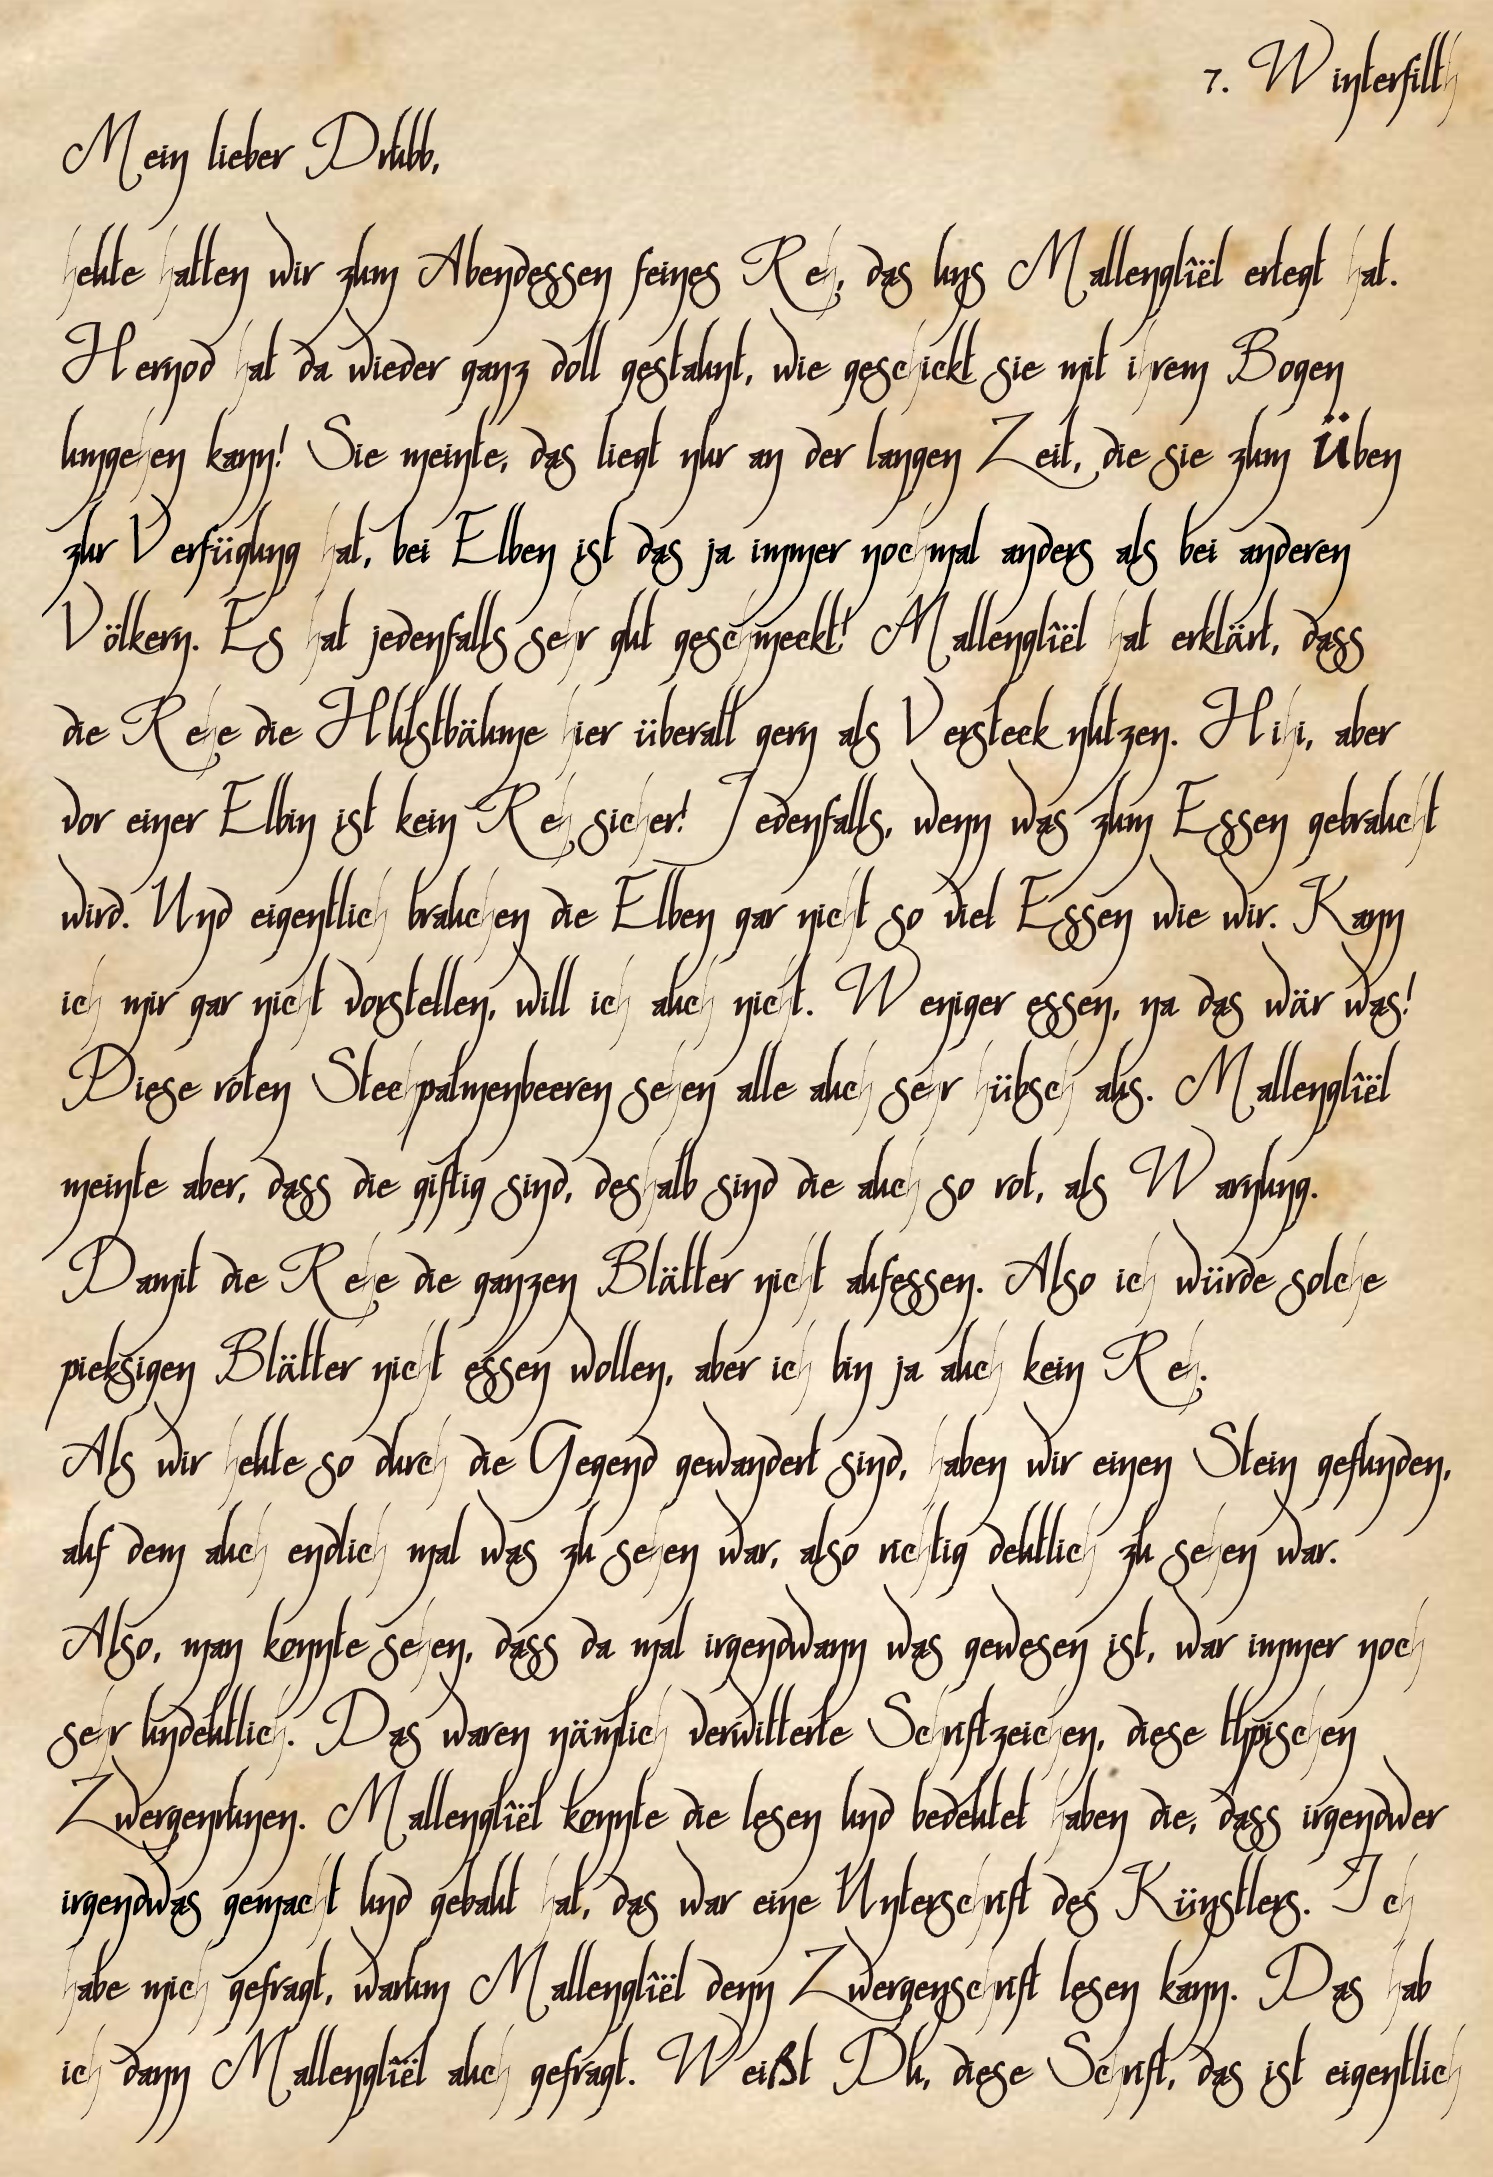 7. Winterfilth
Mein lieber Drubb,
heute hatten wir zum Abendessen feines Reh, das uns Mallenglîël erlegt hat.
Hernod hat da wieder ganz doll gestaunt, wie geschickt sie mit ihrem Bogen
umgehen kann! Sie meinte, das liegt nur an der langen Zeit, die sie zum Üben
zur Verfügung hat, bei Elben ist das ja immer nochmal anders als bei anderen
Völkern. Es hat jedenfalls sehr gut geschmeckt! Mallenglîël hat erklärt, dass
die Rehe die Hulstbäume hier überall gern als Versteck nutzen. Hihi, aber
vor einer Elbin ist kein Reh sicher! Jedenfalls, wenn was zum Essen gebraucht
wird. Und eigentlich brauchen die Elben gar nicht so viel Essen wie wir. Kann
ich mir gar nicht vorstellen, will ich auch nicht. Weniger essen, na das wär was!
Diese roten Stechpalmenbeeren sehen alle auch sehr hübsch aus. Mallenglîël
meinte aber, dass die giftig sind, deshalb sind die auch so rot, als Warnung.
Damit die Rehe die ganzen Blätter nicht aufessen. Also ich würde solche
pieksigen Blätter nicht essen wollen, aber ich bin ja auch kein Reh.
Als wir heute so durch die Gegend gewandert sind, haben wir einen Stein gefunden,
auf dem auch endlich mal was zu sehen war, also richtig deutlich zu sehen war.
Also, man konnte sehen, dass da mal irgendwann was gewesen ist, war immer noch
sehr undeutlich. Das waren nämlich verwitterte Schriftzeichen, diese typischen
Zwergenrunen. Mallenglîël konnte die lesen und bedeutet haben die, dass irgendwer
irgendwas gemacht und gebaut hat, das war eine Unterschrift des Künstlers. Ich
habe mich gefragt, warum Mallenglîël denn Zwergenschrift lesen kann. Das hab
ich dann Mallenglîël auch gefragt. Weißt Du, diese Schrift, das ist eigentlich